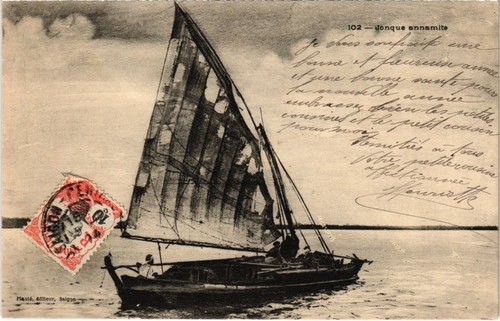 102 — Jonque annamite
Je vous souhaite une
bonne et heureuse année
et une bonne santé pour
la nouvelle année
embrassez bien les petites
cousines et le petit cousin
pour moi
Amitiés à tous
Votre petite cousine
affectionnée
Henriette
Planté, éditeur, Saigon